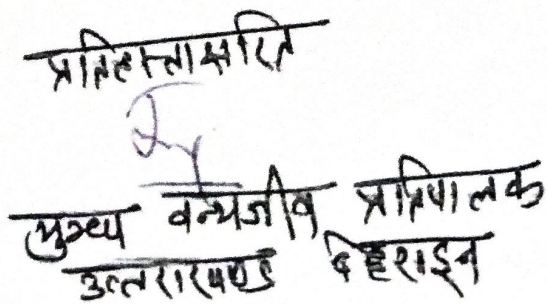 प्रतिहस्ताक्षरित
मुख्य वन्यजीव प्रतिपालक
उत्तराखण्ड देहरादून